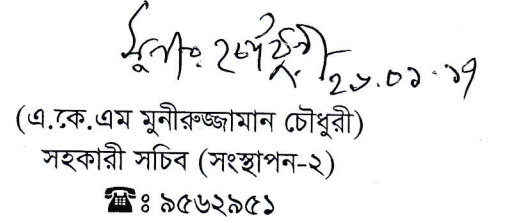 ২৬.০১.১৭
(এ.কে.এম মুনীরুজ্জামান চৌধুরী)
সহকারী সচিব (সংস্থাপন-২)
☎ঃ ৯৫৬২৯৫১